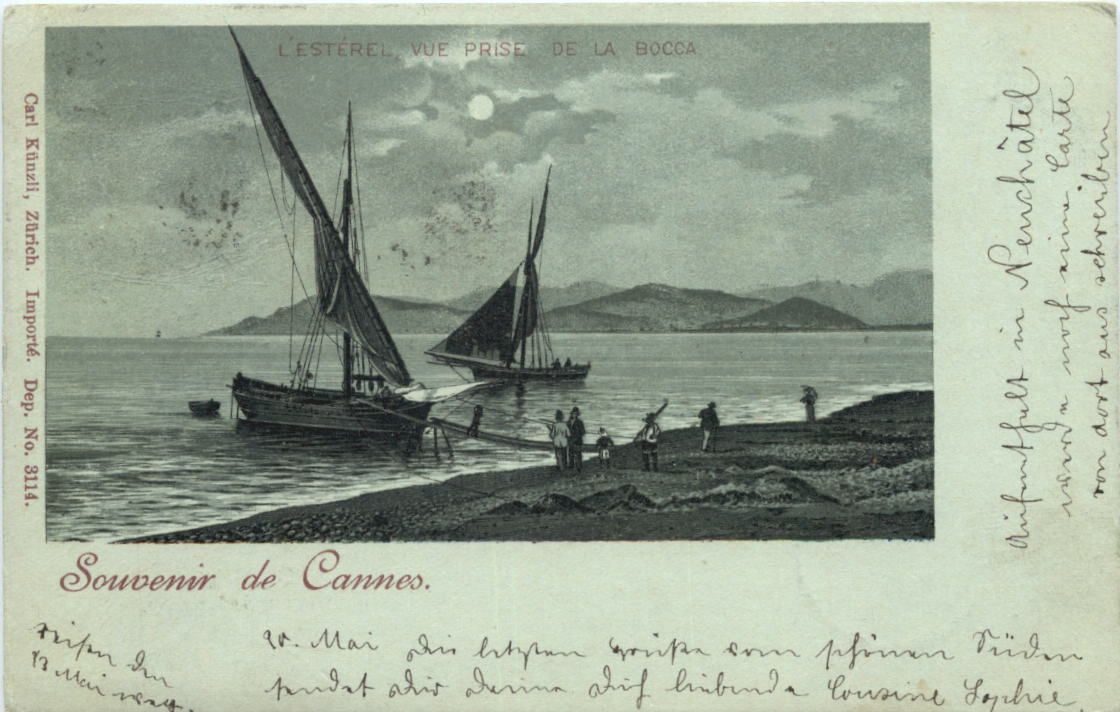 L'ESTÉREL, VUE PRISE DE LA BOCCA
Carl Künzli, Zürich. Importé. Dep. No. 3114.
Souvenir de Cannes.
Mai die letzten Grüße vom schönen Süden
sendet Dir Deine Dich liebende Cousine Sophie.
reisen den
13 Mai weg.
Aufenthalt in Neuchâtel
werde noch eine Carte
von dort aus schreiben